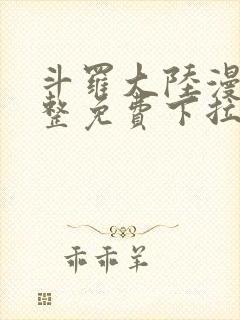 斗羅大陸漫
整免費下拉
乖乖羊